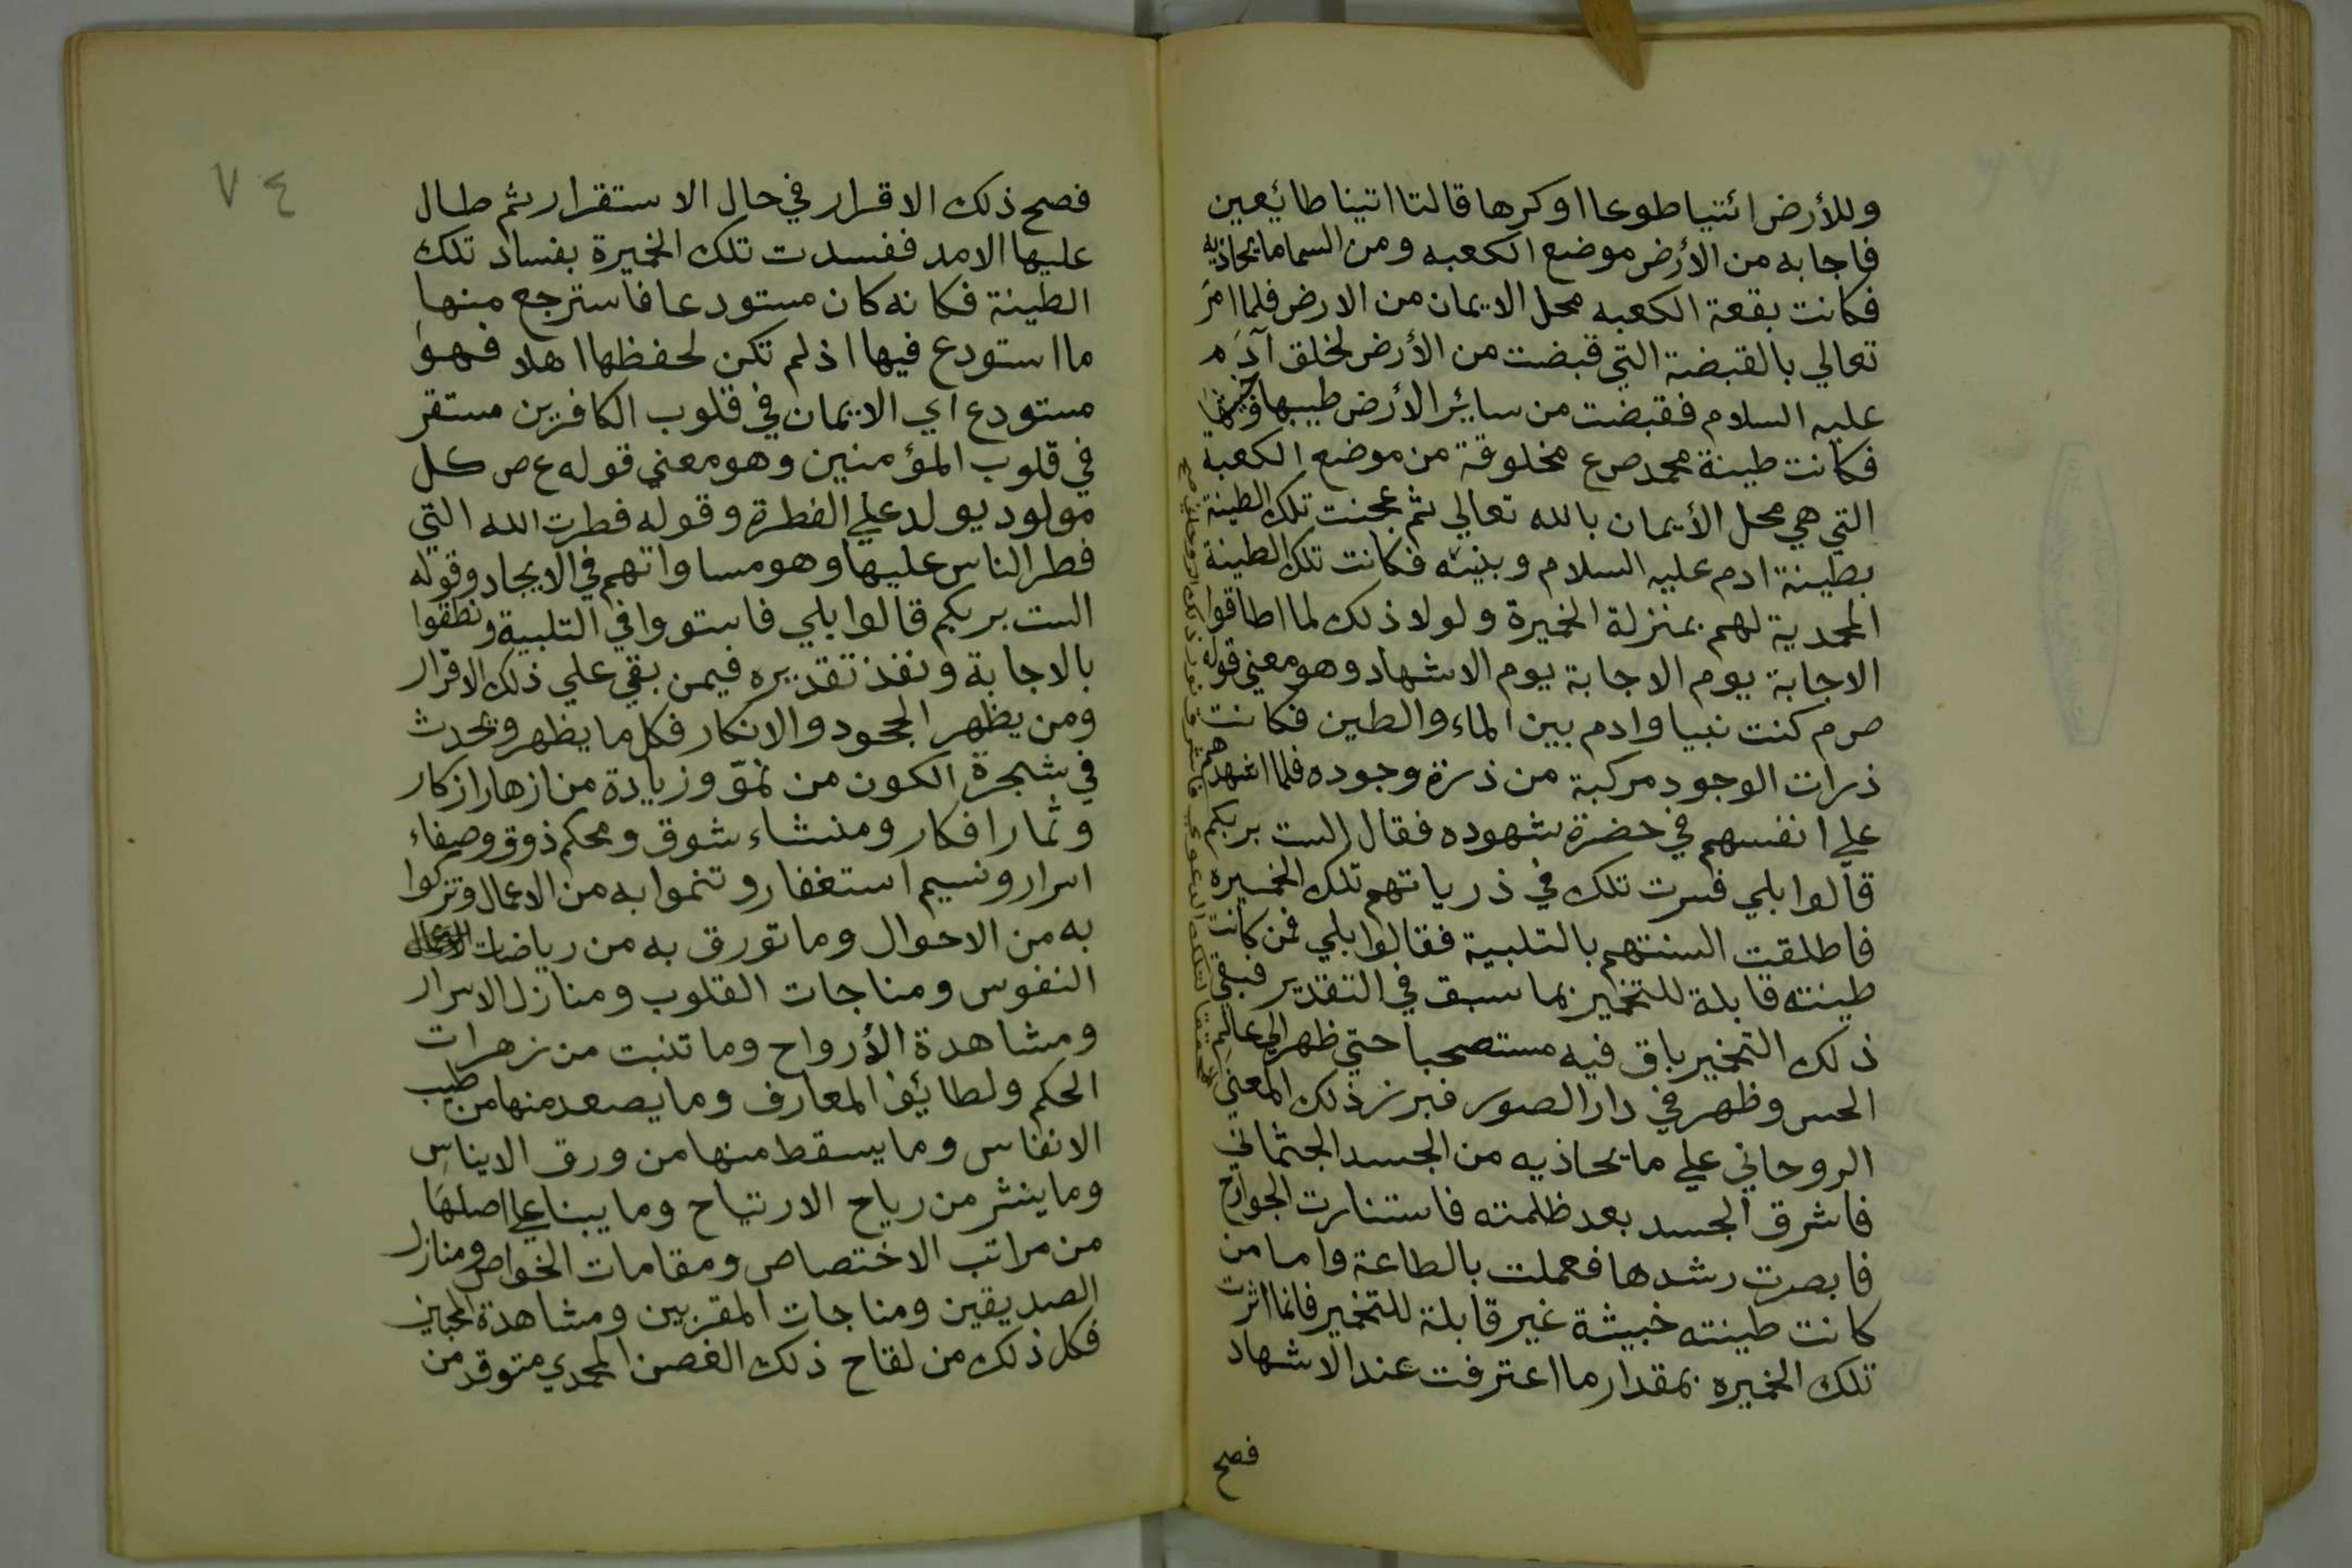 وللأرض ائتيا طوعا او كرها قالتا اتينا طائعين
فاجابه من الأرض موضع الكعبه ومن السما ما يحاذيه
فكانت بقعة الكعبه محل الايمان من الارض فلما امر
تعالي بالقبضة التي قبضت من الأرض لخلق آدم
عليه السلام فقبضت من سائر الأرض طيبها وخبيثها
فكانت طينة محمد صع مخلوقة من موضع الكعبة
التي هي محل الأيمان بالله تعالي ثم عجنت تلك الطينة
بطينة ادم عليه السلام وبنيه فكانت تلك الطينة
المحمدية لهم بمنزلة الخميرة ولولا ذلك لما اطاقوا
الاجابة يوم الاجابة يوم الاشهاد وهو معني قوله
صرم كنت نبيا وادم بين الماء والطين فكانت
ذرات الوجود مركبة من ذرة وجوده فلما اشهدهم
علي انفسهم في حضرة شهوده فقال الست بربكم
قالوا بلي فسرت تلك في ذرياتهم تلك الخميرة
فاطلقت السنتهم بالتلبية فقالوا بلي فمن كانت
طينته قابلة للتخمير بما سبق في التقدير فبقي
ذلك التخمير باق فيه مستصحبا حتي ظهر الي عالم
الحس وظهر في دار الصور فبرز ذلك المعني
الروحاني علي ما يحاذيه من الجسد الجثماني
فاشرق الجسد بعد ظلمته فاستنارت الجوارح
فابصرت رشدها فعملت بالطاعة واما من
كانت طينته خبيثة غير قابلة للتخمير فانما اثرت
تلك الخميره بمقدار ما اعترفت عند الاشهاد
فصح
٧٤
فصح ذلك الاقرار في حال الاستقرار ثم طال
عليها الامد ففسدت تلك الخميرة بفساد تلك
الطينة فكانه كان مستودعا فاسترجع منها
ما استودع فيها اذ لم تكن لحفظها اهلا فهو
مستودع اي الايمان في قلوب الكافرين مستقر
في قلوب المؤمنين وهو معني قوله ع ص كل
مولود يولد علي الفطرة وقوله فطرت الله التي
فطر الناس عليها وهو مساواتهم في الايجاد وقوله
الست بربكم قالوا بلي فاستووا في التلبية ونطقوا
بالاجابة ونفذ تقديره فيمن بقي علي ذلك الاقرار
ومن يظهر الجحود والانكار فكل ما يظهر ويحدث
في شجرة الكون من نموّ وزيادة من ازهار ازكار
وثمار افكار ومنشاء شوق ومحكم ذوق وصفاء
اسرار ونسيم استغفار وتنموا به من الاعمال وتزكوا
به من الاحوال وما تورق به من رياضات
النفوس ومناجات القلوب ومنازل الاسرار
ومشاهدة الأرواح وما تنبت من زهرات
الحكم ولطائف المعارف وما يصعد منها من طيب
الانفاس وما يسقط منها من ورق الايناس
وما ينثر من رياح الارتياح وما يبنا علي اصلها
من مراتب الاختصاص ومقامات الخواص ومنازل
الصديقين ومناجات المقربين ومشاهدة المحبين
فكل ذلك من لقاح ذلك الغصن المحمدي متوقد من